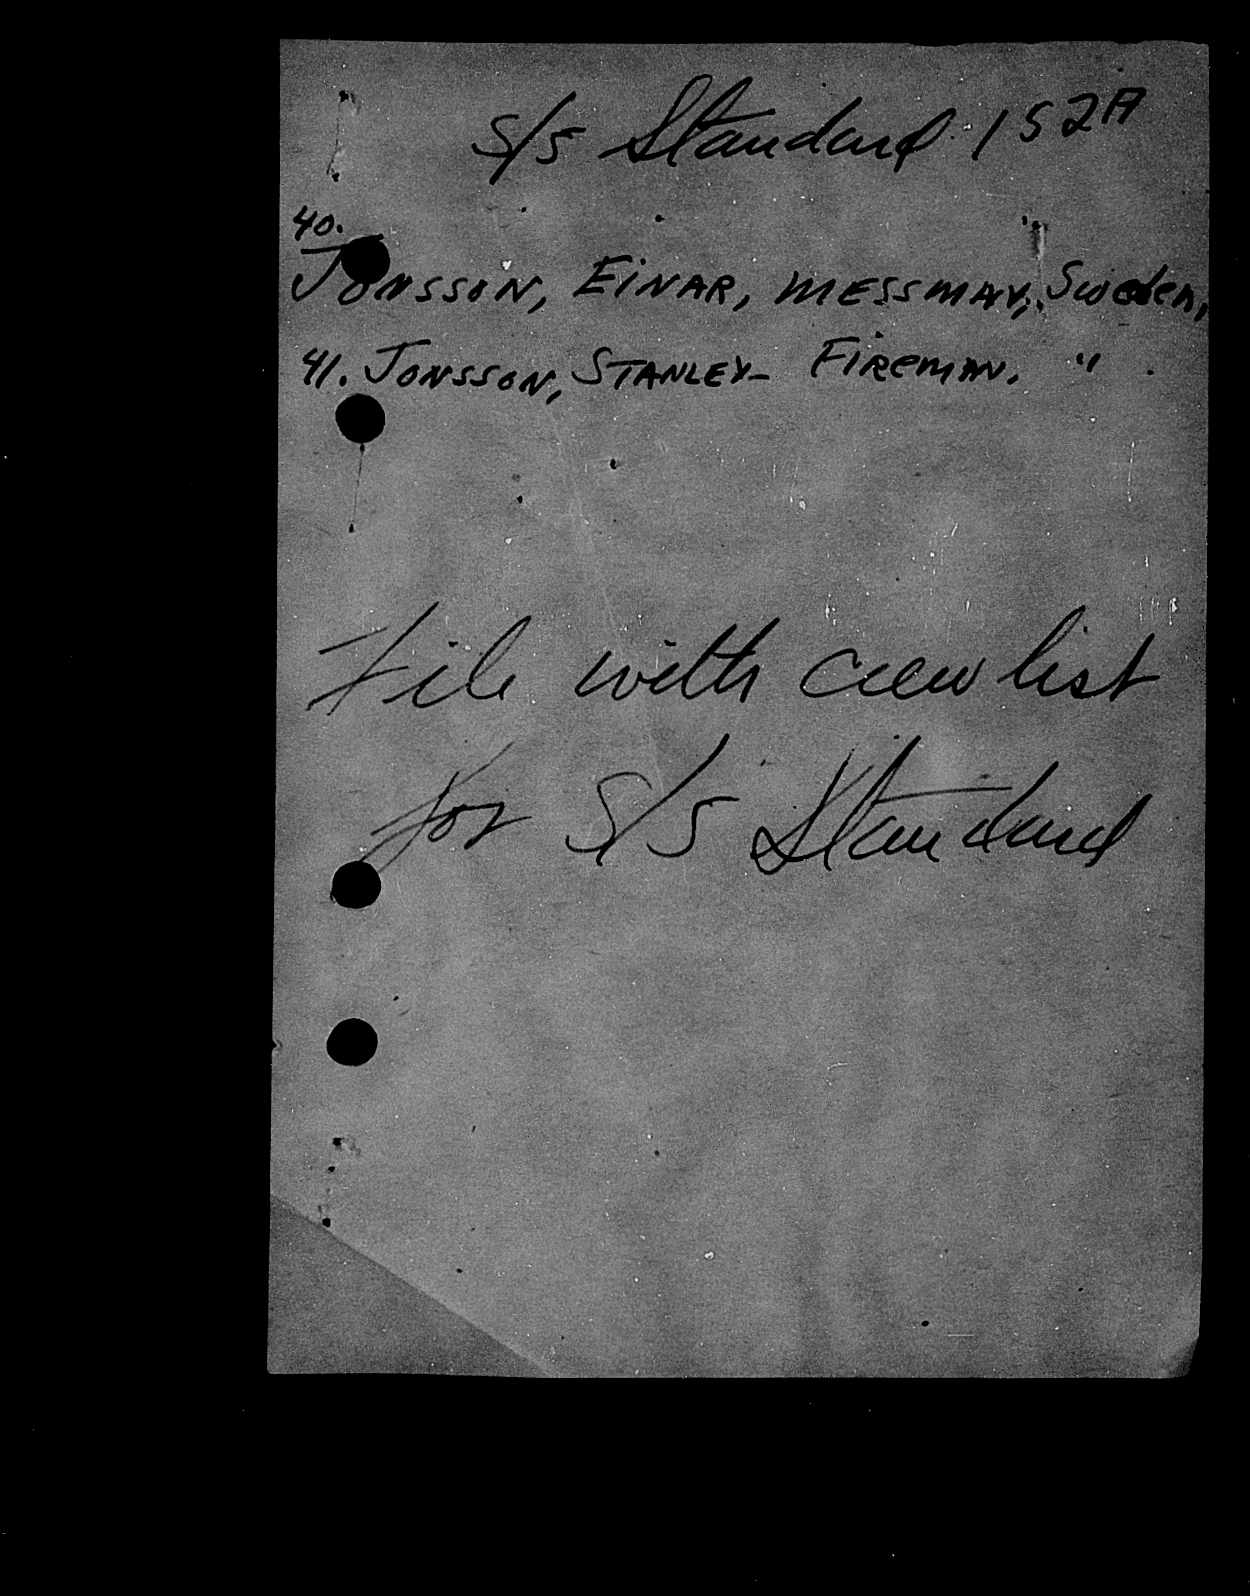 S/S Standard. 152A
40.
JONSSON, EINAR, MESSMAN, Sweden,
41. JONSSON, STANLEY- FIREMAN. "
File with crew list
for S/S Standard